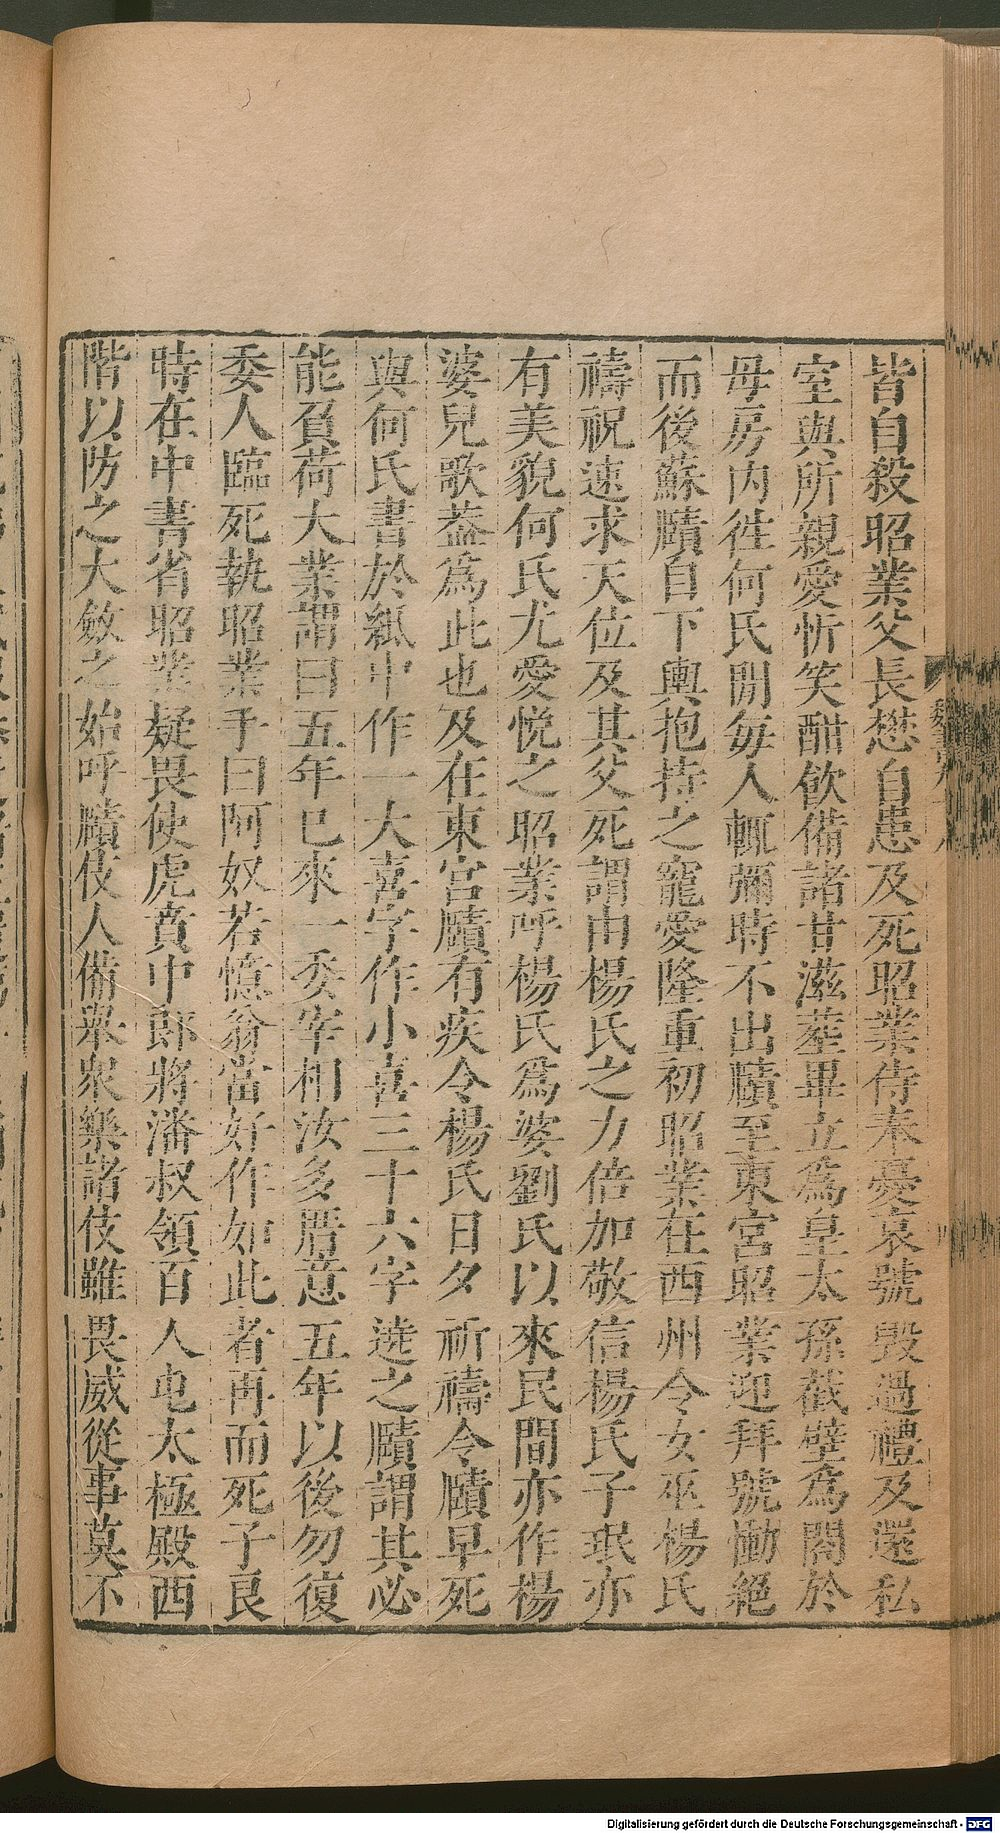 皆自殺昭業父長懋自患及死昭業侍奉憂哀號毀過禮及還私
室與所親愛忻笑酣飲備諸甘滋葬畢立為皇太孫截壁為閤於
母房內往何氏閒每人輒彌時不出賾至東宮昭業迎拜號慟絕
而後蘇賾自下輿抱持之寵愛隆重初昭業在西州令女巫楊氏
禱祝速求天位及其父死謂由楊氏之力倍加敬信楊氏子珉亦
有美貌何氏尤愛悅之昭業呼楊氏為婆劉氏以來民間亦作楊
婆兒歌蓋為此也及在東宮賾有疾令楊氏日夕祈禱令賾早死
與何氏書於紙中作一大喜字作小喜三十六字遶之賾謂其必
能負荷大業謂曰五年已來一委宰相汝多厝意五年以後勿復
委人臨死執昭業手曰阿奴若憶翁當好作如此者再而死子良
時在中書省昭業疑畏使虎賁中郎將潘叔領百人屯太極殿西
階以防之大斂之始呼賾伎人備舉眾樂諸伎雖畏威從事莫不
Digitalisierung gefördert durch die Deutsche Forschungsgemeinschaft - DFG